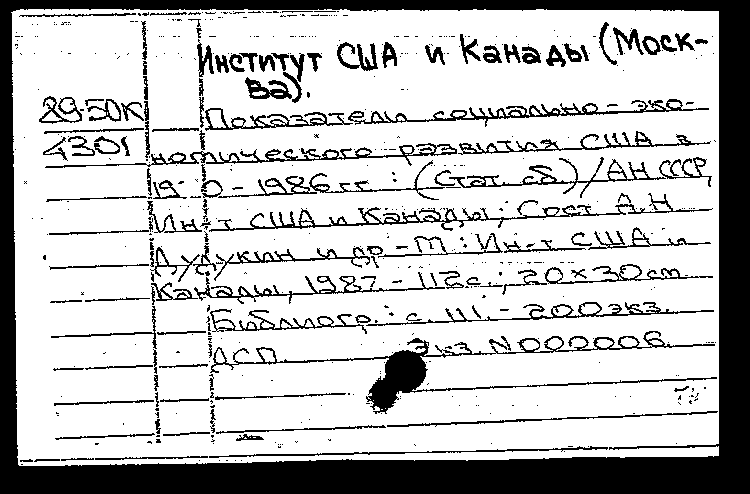 Институт США и Канады (Моск-
ва).
89-50к Показатели социально-эко-
4301 номического развития США в
– 1986 гг. : (Стат. сб.) / АН СССР,
Ин-т США и Канады; Сост. А.Н.
Дудукин и др. – М : Ин-т США и
Канады, 1987. – 112с.; 20×30 см
Библиогр.: с. 111. – 200 экз.
ДСП. Экз. N000006.